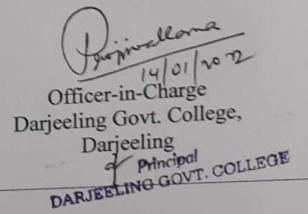 14/01/2022
Officer-in-Charge
Darjeeling Govt. College,
Darjeeling
Principal
DARJEELING GOVT. COLLEGE